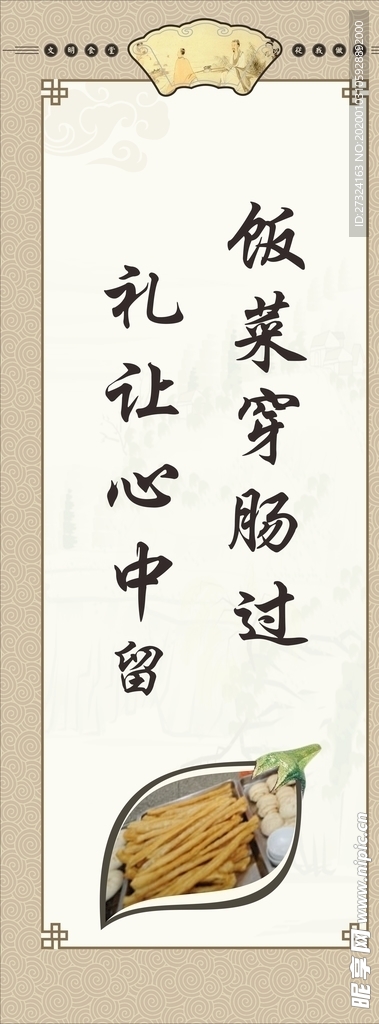 文明食堂
从我做
饭菜穿肠过
礼让心中留
ID:27324163 NO:20200103105928892000
昵享网 www.nipic.cn